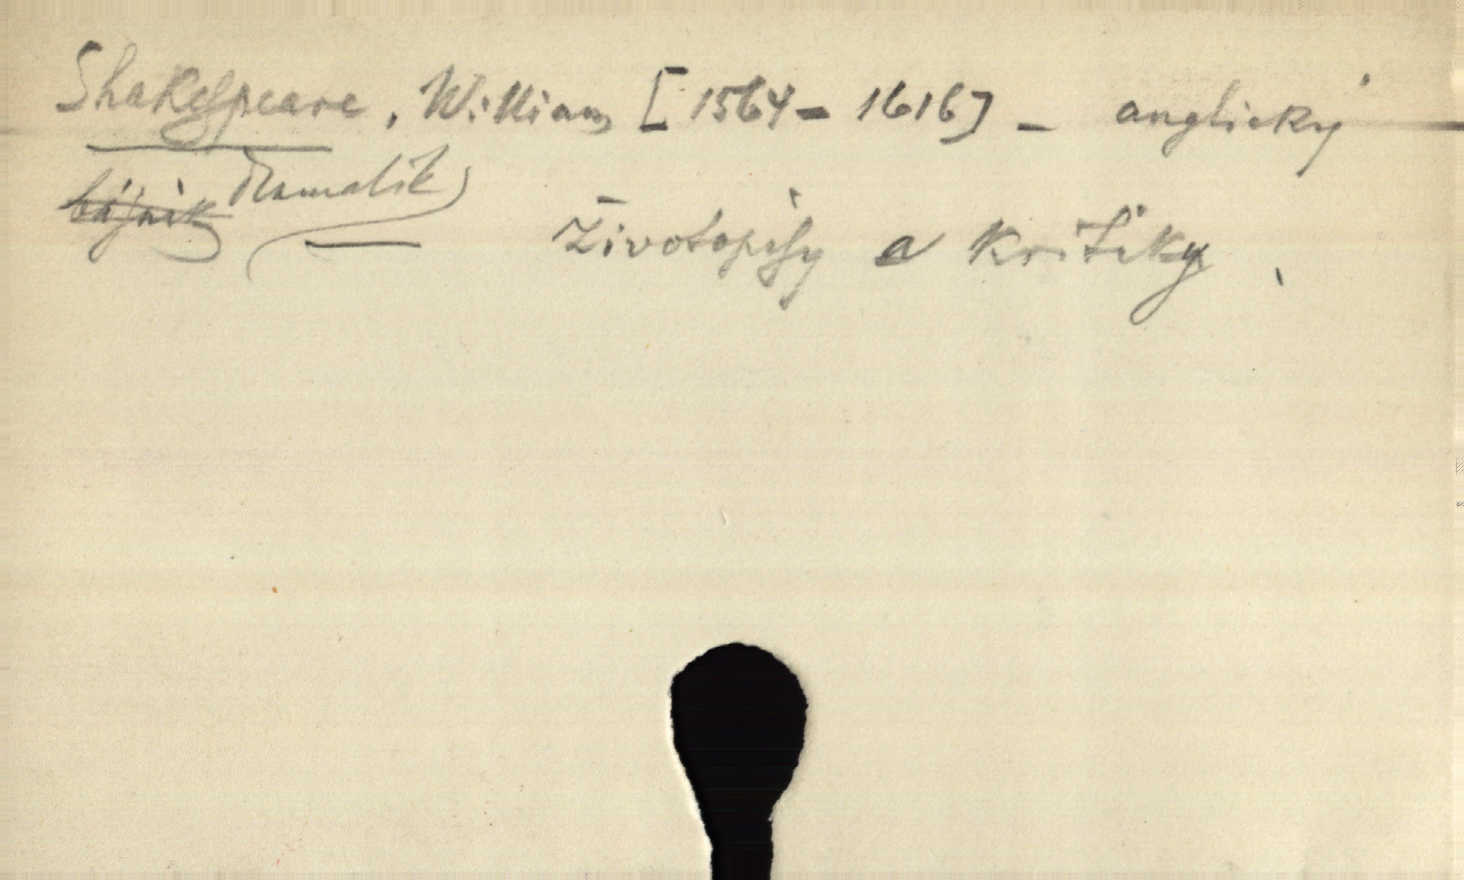 Shakespeare, William [1564 - 1616] - anglický
básník dramatik - Životopisy a kritiky.